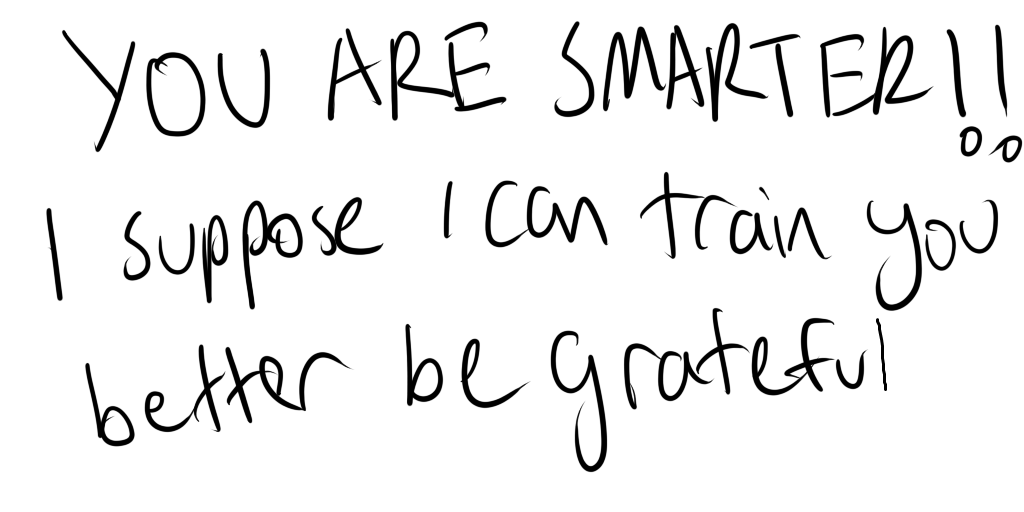 YOU ARE SMARTER!!
I suppose I can train you
better be grateful